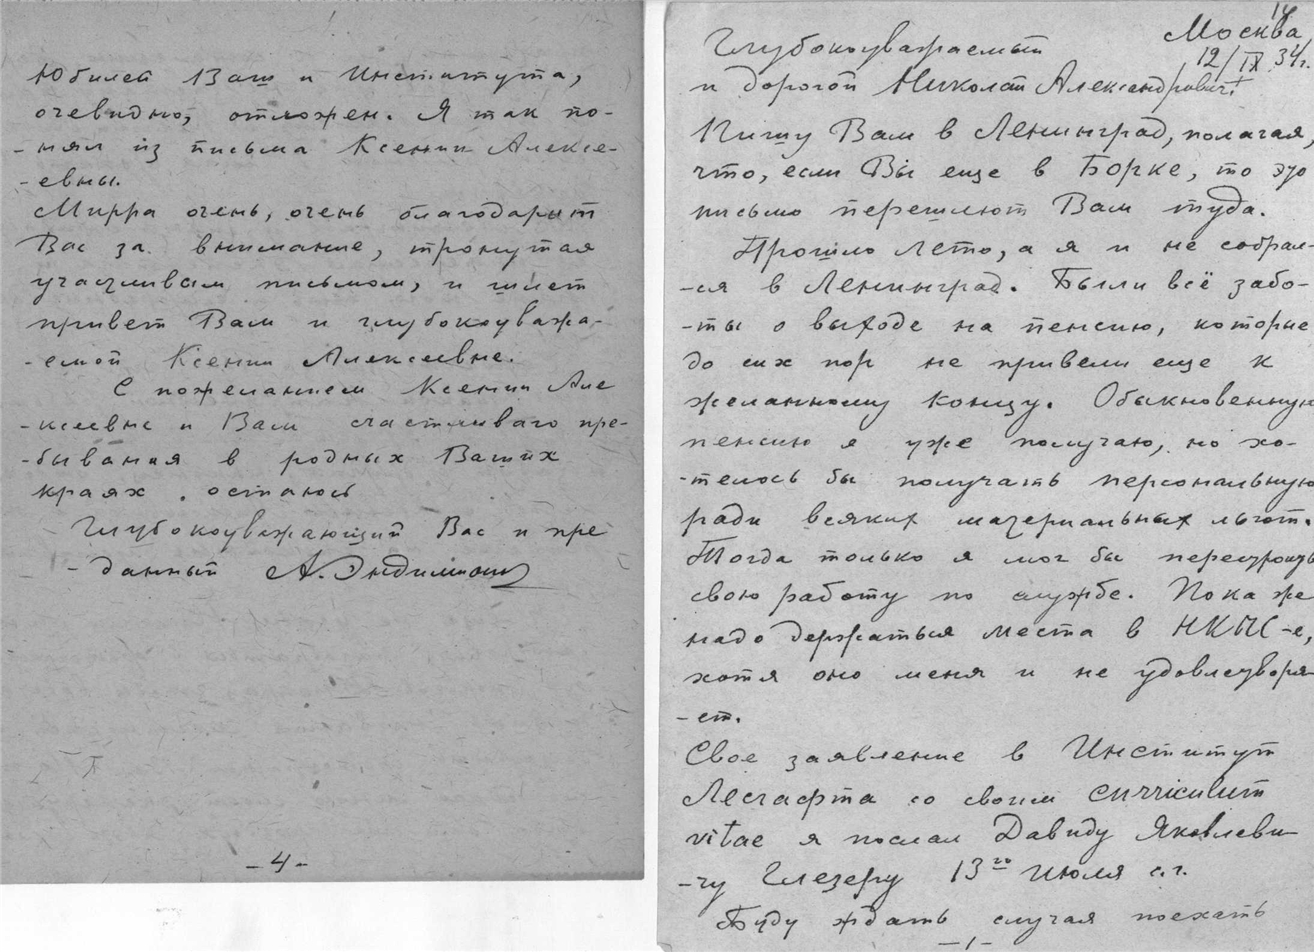 Юбилей Ваш и Института,
очевидно, отложен. Я так по-
-нял из письма Ксении Алексе-
-евны.
Мирра очень, очень благодарит
Вас за внимание, тронутая
участливым письмом, и шлет
привет Вам и глубокоуважа-
-емой Ксении Алексеевне.
С пожеланием Ксении Але
-ксеевне и Вам счастливаго пре-
-бывания в родных Ваших
краях, остаюсь
Глубокоуважающий Вас и пре
-данный А.
-4-
Москва
12/IX 34г.
Глубокоуважаемый
и дорогой Николай Александрович!
Пишу Вам в Ленинград, полагая,
что, если Вы еще в Борке, то это
письмо перешлют Вам туда.
Прошло лето, а я и не собрал-
-ся в Ленинград. Были всё забо-
-ты о выходе на пенсию, которые
до сих пор не привели еще к
желанному концу. Обыкновенную
пенсию я уже получаю, но хо-
-телось бы получать персональную
ради всяких материальных льгот.
Тогда только я мог бы перестроить
свою работу по службе. Пока же
надо держаться места в НКПС-е,
хотя оно меня и не удовлетворя-
-ет.
Свое заявление в Институт
Лесгафта со своим curriculum
vitae я послал Давиду Яковлеви-
-чу Глезеру 13го июля с.г.
Буду ждать случая поехать
-1-